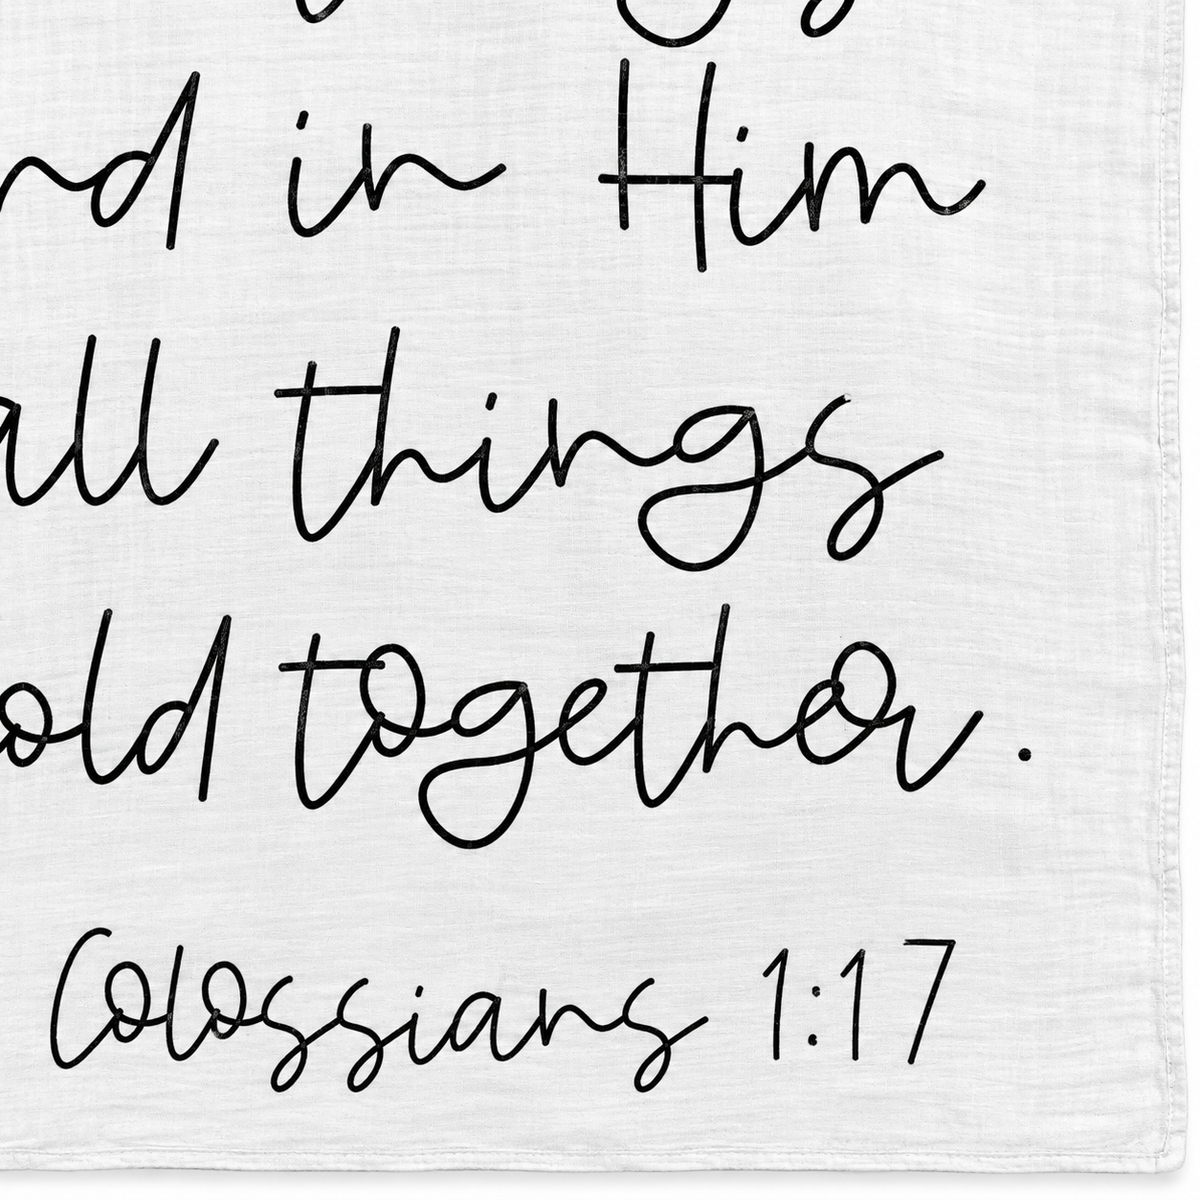 nd in Him
all things
old together.
Colossians 1:17